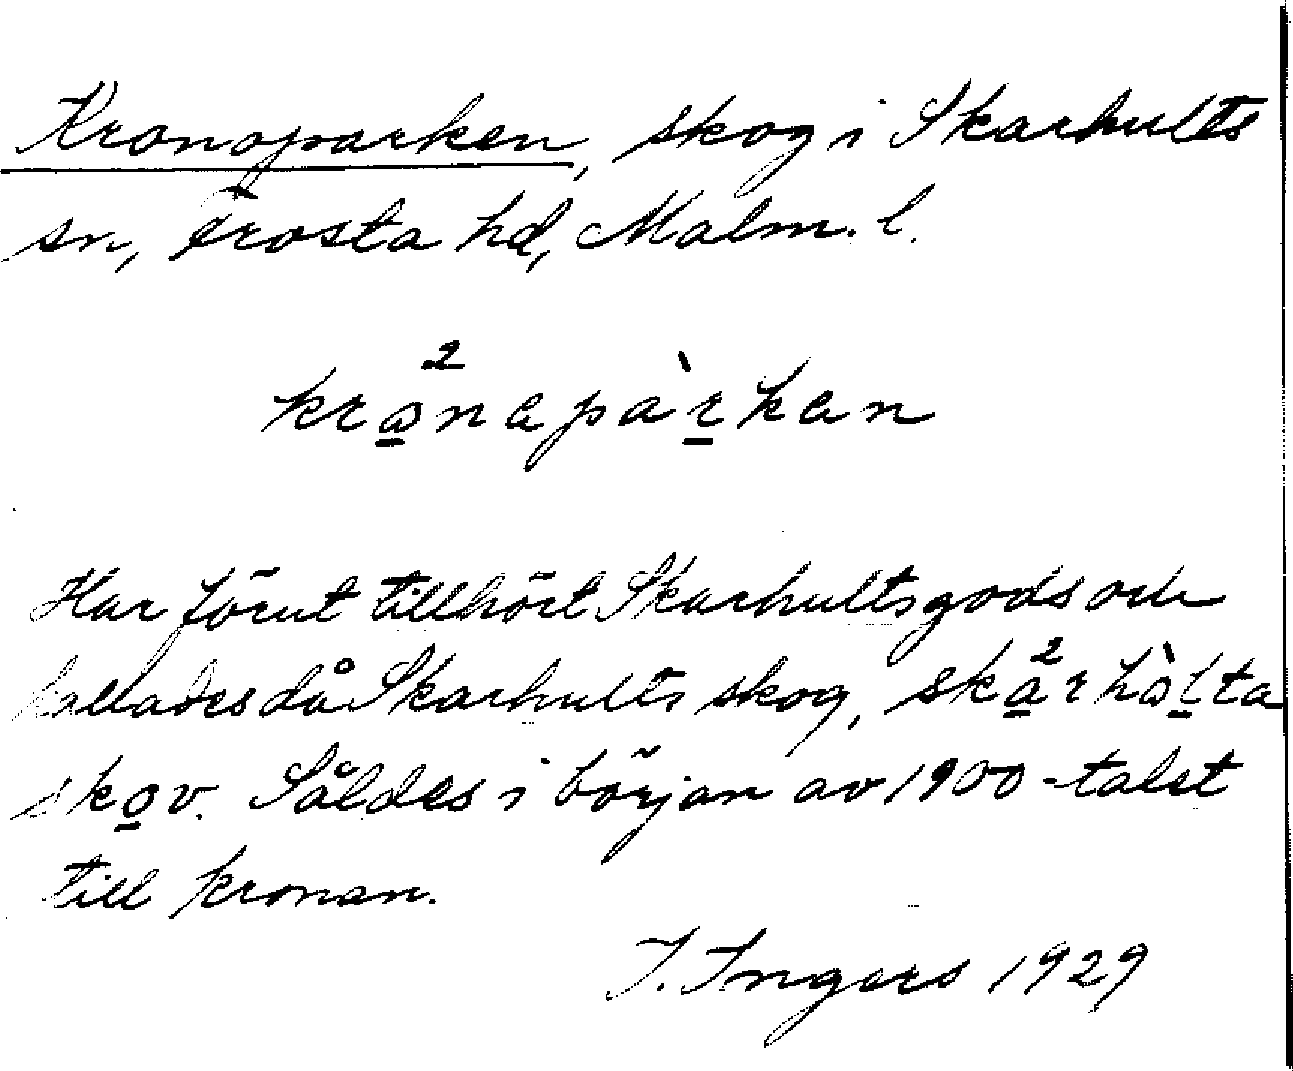 Kronoparken, skog i Skarhults
sn, Frosta hd, Malm. l.
2
kronapàrkan
Har förut tillhört Skarhults gods och
kallades då Skarhults skog, ska2rhòlta
skov. Såldes i början av 1900-talet
till kronan.
I. Ingers 1929